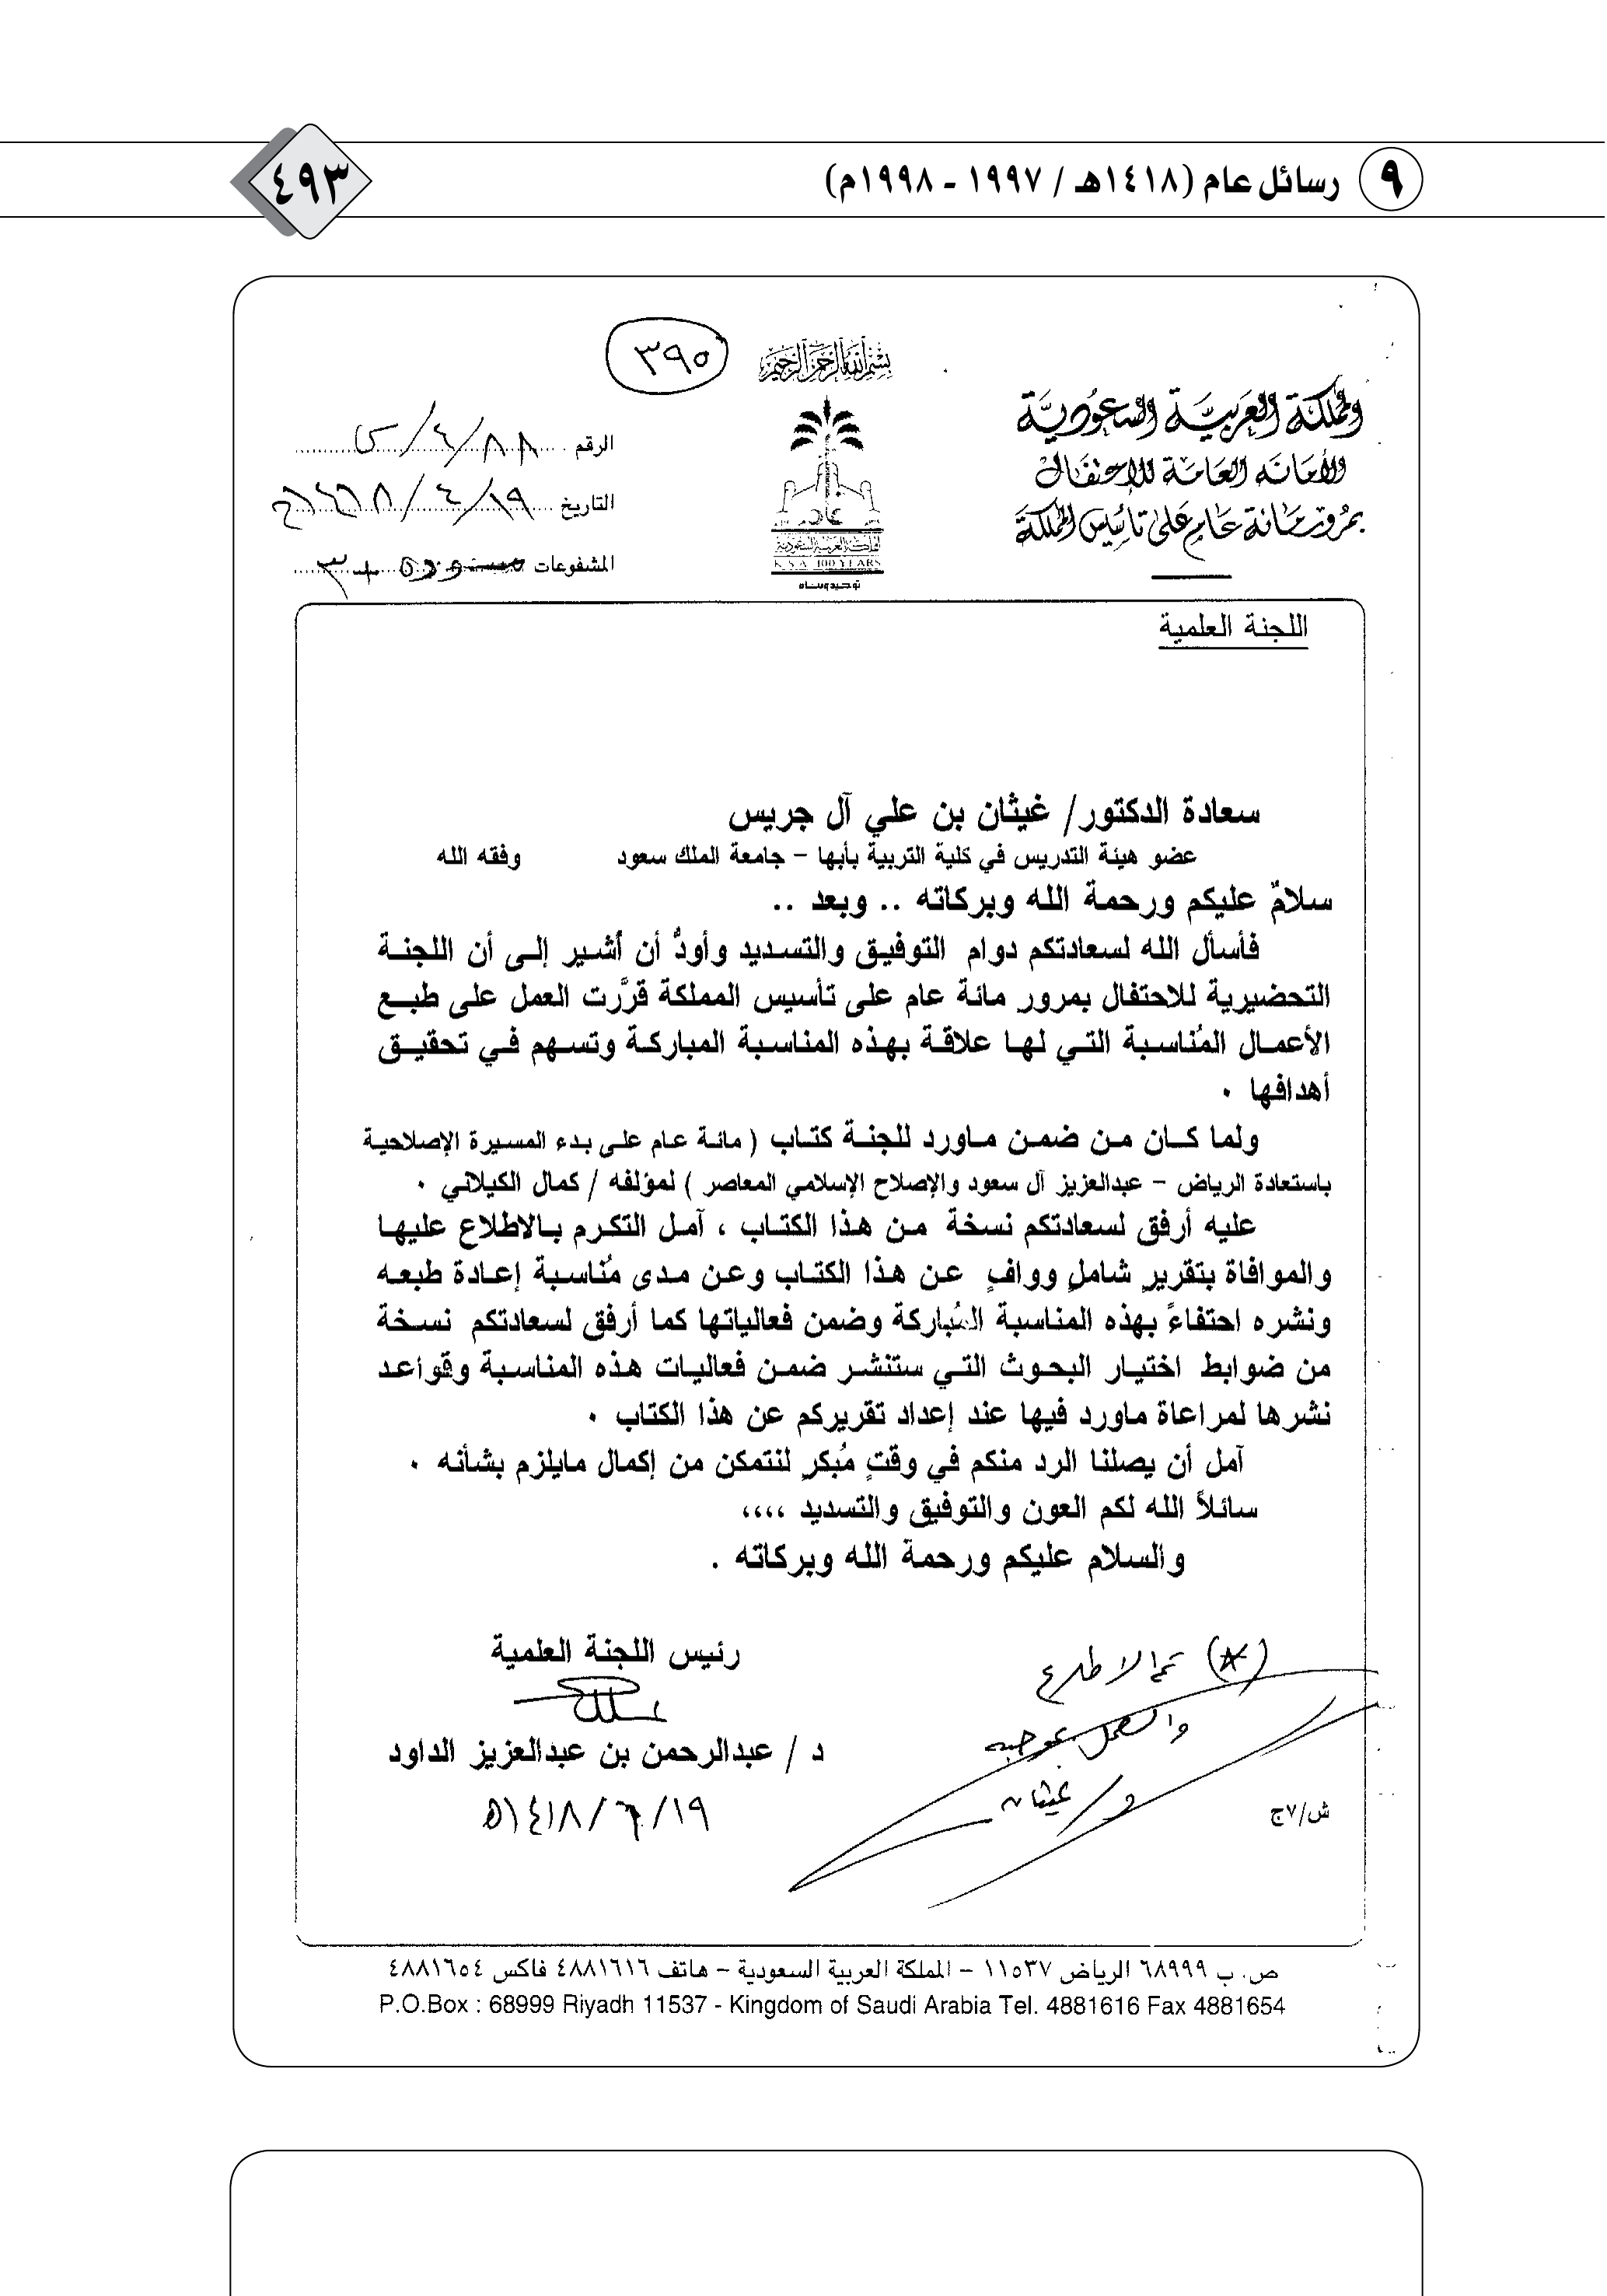 ٩ رسائل عام (١٤١٨هـ / ١٩٩٧ - ١٩٩٨م)
٤٩٣
٣٩٥
بسم الله الرحمن الرحيم
المملكة العربية السعودية
الأمانة العامة للاحتفال
بمرور مائة عام على تأسيس المملكة
الرقم ٨٨/٤/س
التاريخ ١٩/٤/١٤١٨هـ
المشفوعات ٣+
مائة عام
المملكة العربية السعودية
K.S.A 100 YEARS
توحيد وبناء
اللجنة العلمية
سعادة الدكتور/ غيثان بن علي آل جريس
عضو هيئة التدريس في كلية التربية بأبها – جامعة الملك سعود وفقه الله
سلامٌ عليكم ورحمة الله وبركاته .. وبعد ..
فأسأل الله لسعادتكم دوام التوفيق والتسديد وأودُّ أن أُشير إلى أن اللجنة
التحضيرية للاحتفال بمرور مائة عام على تأسيس المملكة قرَّرت العمل على طبع
الأعمال المُناسبة التي لها علاقة بهذه المناسبة المباركة وتسهم في تحقيق
أهدافها ٠
ولما كان من ضمن ماورد للجنة كتاب ( مائة عام على بدء المسيرة الإصلاحية
باستعادة الرياض – عبدالعزيز آل سعود والإصلاح الإسلامي المعاصر ) لمؤلفه / كمال الكيلاني ٠
عليه أرفق لسعادتكم نسخة من هذا الكتاب ، آمل التكرم بالاطلاع عليها
والموافاة بتقريرٍ شاملٍ ووافٍ عن هذا الكتاب وعن مدى مُناسبة إعادة طبعه
ونشره احتفاءً بهذه المناسبة المُباركة وضمن فعالياتها كما أرفق لسعادتكم نسخة
من ضوابط اختيار البحوث التي ستنشر ضمن فعاليات هذه المناسبة وقواعد
نشرها لمراعاة ماورد فيها عند إعداد تقريركم عن هذا الكتاب ٠
آمل أن يصلنا الرد منكم في وقتٍ مُبكرٍ لنتمكن من إكمال مايلزم بشأنه ٠
سائلاً الله لكم العون والتوفيق والتسديد ،،،،
والسلام عليكم ورحمة الله وبركاته .
رئيس اللجنة العلمية
د / عبدالرحمن بن عبدالعزيز الداود
١٩/٦/١٤١٨هـ
(*) تم الاطلاع
والعمل بموجبه
د/ غيثان
ش/٧ج
ص. ب ٦٨٩٩٩ الرياض ١١٥٣٧ – المملكة العربية السعودية – هاتف ٤٨٨١٦١٦ فاكس ٤٨٨١٦٥٤
P.O.Box : 68999 Riyadh 11537 - Kingdom of Saudi Arabia Tel. 4881616 Fax 4881654